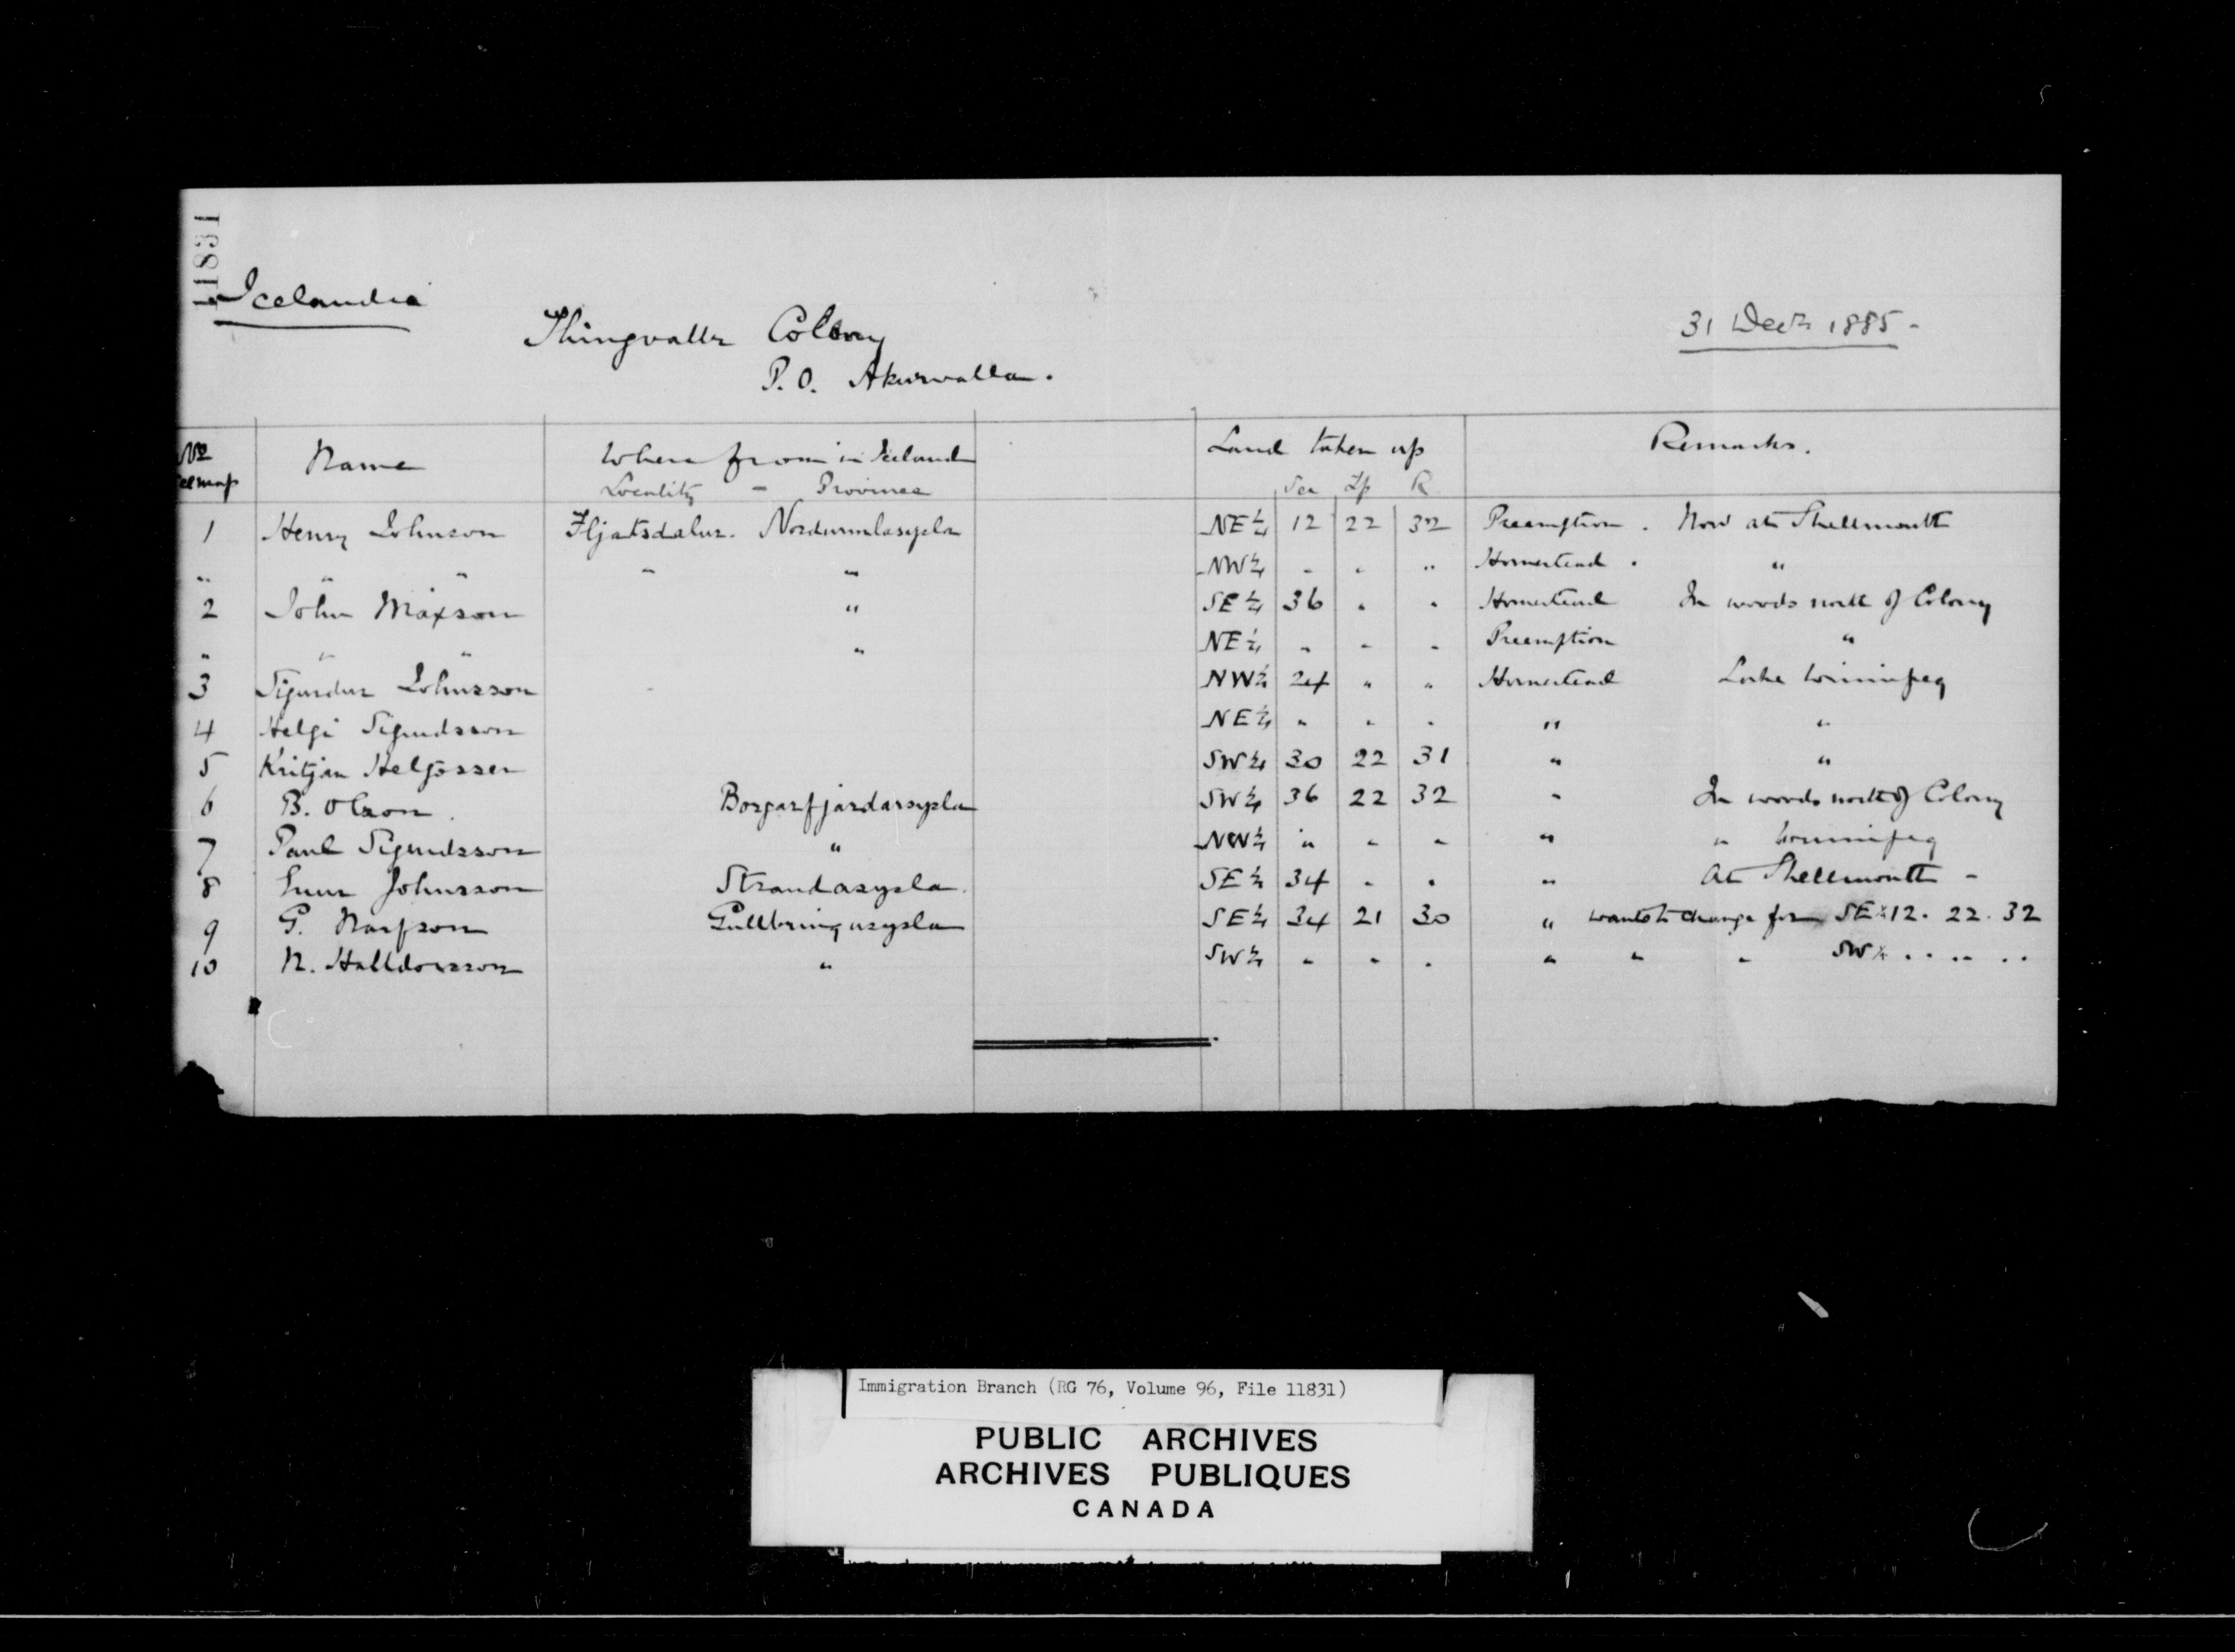 11831
Icelandia
Thingvalla Colony
P.O. Akurvalla.
31 Decr 1885 -
No Name Where from in Iceland Land taken up Remarks.
map Locality - Province Sec Tp R
1 Henry Johnson Fljotsdalur. Nordurmulasysla NE¼ 12 22 32 Preemption . Now at Shellmouth
" " " " " NW¼ " " " Homestead . "
2 John Maxson " SE¼ 36 " " Homestead In woods north of Colony
" " " " NE¼ " " " Preemption "
3 Sigurdur Johnsson NW¼ 24 " " Homestead Lake Winnipeg
4 Helgi Sigurdsson NE¼ " " " " "
5 Kritjan Helgossen SW¼ 30 22 31 " "
6 B. Olson . Borgarfjardarsysla SW¼ 36 22 32 " In woods north of Colony
7 Paul Sigurdsson " NW¼ " " " " " Winnipeg
8 Johnsson Strandasysla . SE¼ 34 " " " At Shellmouth -
9 G. Narfson Gullbringusysla SE¼ 34 21 30 " wants to change for SE¼ 12 . 22 . 32
10 N. Halldorsson " SW¼ " " " " " " SW¼ . . .. ..
Immigration Branch (RG 76, Volume 96, File 11831)
PUBLIC ARCHIVES
ARCHIVES PUBLIQUES
CANADA